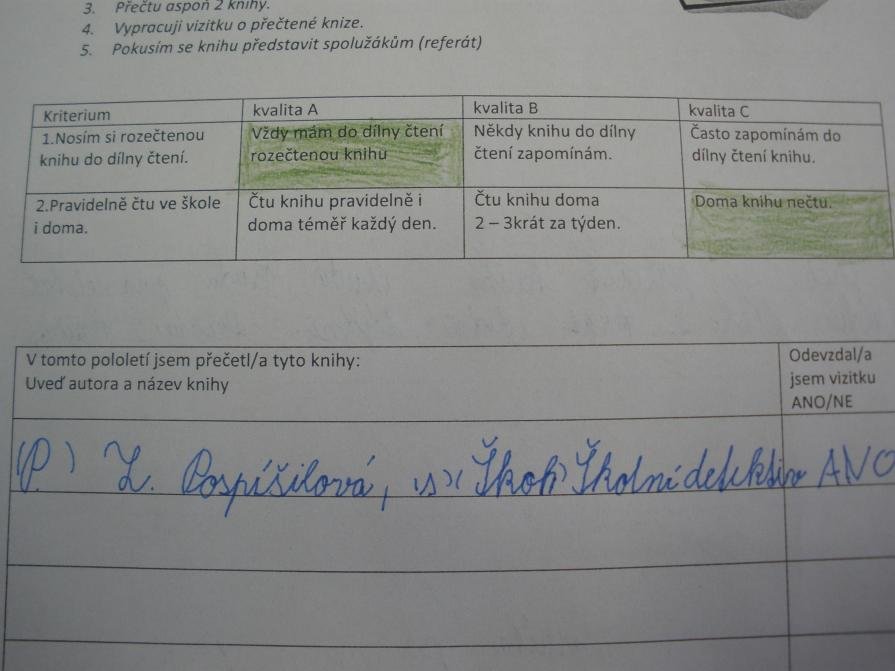 3. Přečtu aspoň 2 knihy.
4. Vypracuji vizitku o přečtené knize.
5. Pokusím se knihu představit spolužákům (referát)
Kriterium kvalita A kvalita B kvalita C
1.Nosím si rozečtenou
knihu do dílny čtení.
Vždy mám do dílny čtení
rozečtenou knihu
Někdy knihu do dílny
čtení zapomínám.
Často zapomínám do
dílny čtení knihu.
2.Pravidelně čtu ve škole
i doma.
Čtu knihu pravidelně i
doma téměř každý den.
Čtu knihu doma
2 – 3krát za týden.
Doma knihu nečtu.
V tomto pololetí jsem přečetl/a tyto knihy:
Uveď autora a název knihy
Odevzdal/a
jsem vizitku
ANO/NE
(P.) Z. Pospíšilová, (Škol) Školní detektiv ANO